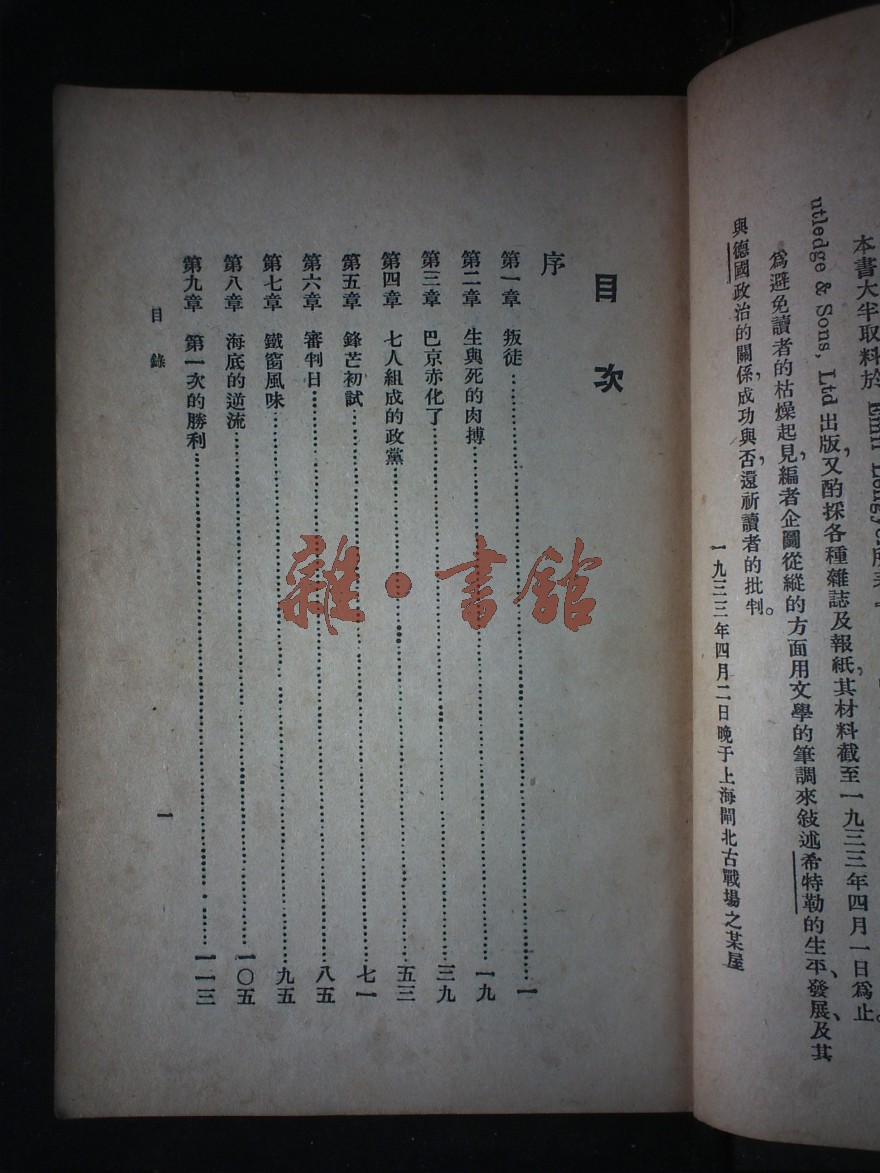 本書大半取料於 Emil Lengyel 所著
utledge & Sons, Ltd 出版，又酌採各種雜誌及報紙，其材料截至一九三三年四月一日爲止。
爲避免讀者的枯燥起見，編者企圖從縱的方面用文學的筆調來敍述希特勒的生平、發展、及其
與德國政治的關係，成功與否還祈讀者的批判。
一九三三年四月二日晚于上海閘北古戰場之某屋
目次
序
第一章 叛徒……一
第二章 生與死的肉搏……一九
第三章 巴京赤化了……三九
第四章 七人組成的政黨……五三
第五章 鋒芒初試……七一
第六章 審判日……八五
第七章 鐵窗風味……九五
第八章 海底的逆流……一〇五
第九章 第一次的勝利……一一三
目錄
一
雜·書館